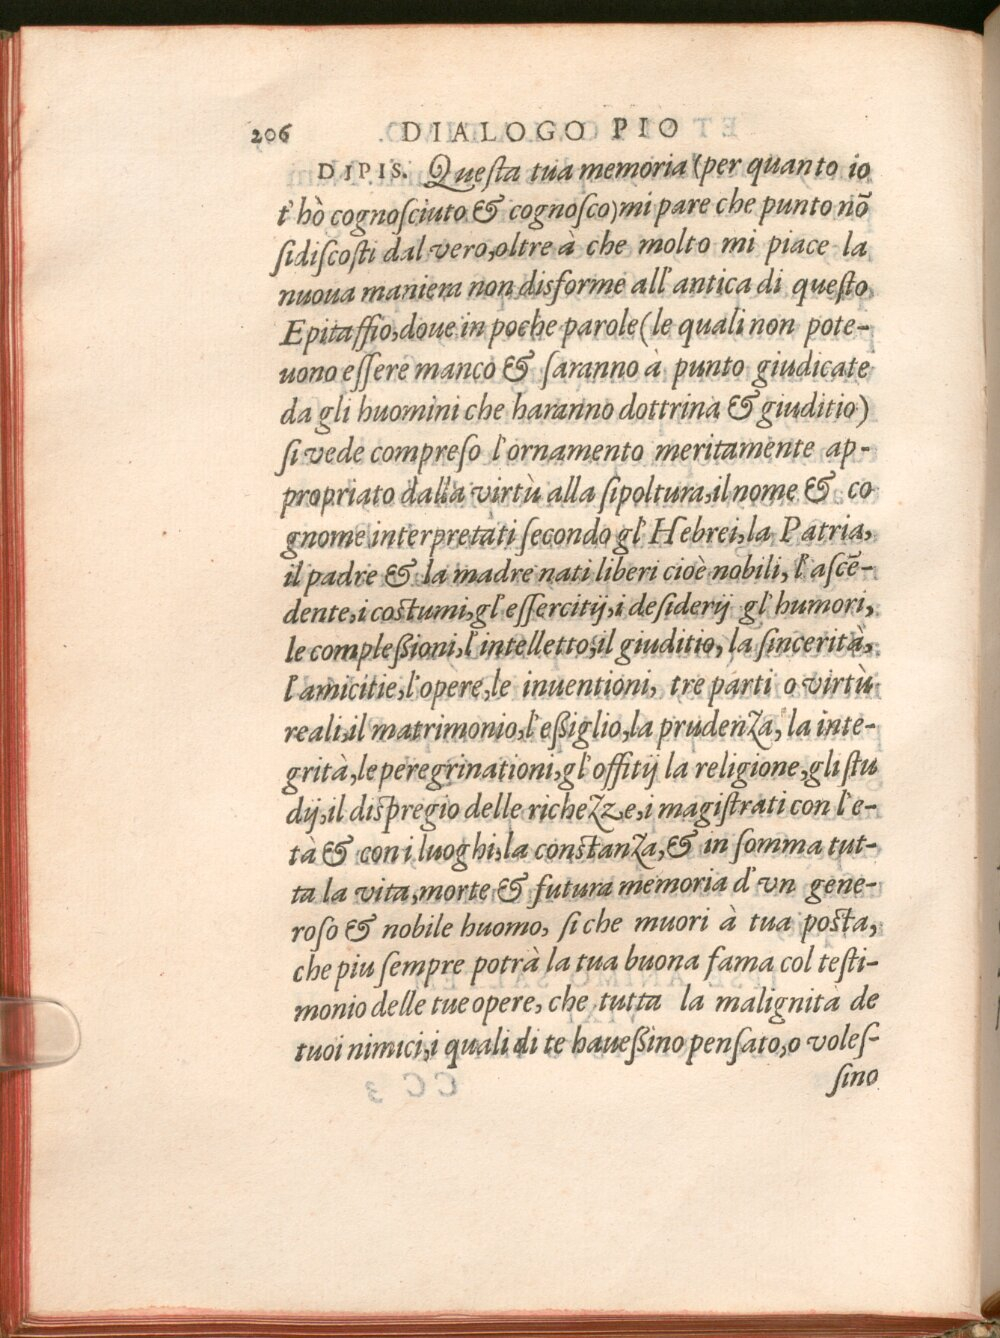 206 DIALOGO PIO
DIPIS. Queſta tua memoria (per quanto io
t'hò cognoſciuto & cognoſco) mi pare che punto nō
ſidiſcoſti dal vero, oltre à che molto mi piace la
nuoua maniera non disforme all'antica di queſto
Epitaffio, doue in poche parole (le quali non pote-
uono eſſere manco & ſaranno à punto giudicate
da gli huomini che haranno dottrina & giuditio)
ſi vede compreſo l'ornamento meritamente ap-
propriato dalla virtù alla ſipoltura, il nome & co
gnome interpretati ſecondo gl'Hebrei, la Patria,
il padre & la madre nati liberi cioè nobili, l'aſcē-
dente, i coſtumi, gl'eſſercitij, i deſiderij gl'humori,
le compleßioni, l'intelletto, il giuditio, la ſincerità,
l'amicitie, l'opere, le inuentioni, tre parti o virtù
reali, il matrimonio, l'eßiglio, la prudenza, la inte-
grità, le peregrinationi, gl'offitij la religione, gli ſtu
dij, il diſpregio delle richezze, i magiſtrati con l'e-
tà & con i luoghi, la conſtanza, & in ſomma tut-
ta la vita, morte & futura memoria d'vn gene-
roſo & nobile huomo, ſi che muori à tua poſta,
che piu ſempre potrà la tua buona fama col teſti-
monio delle tue opere, che tutta la malignità de
tuoi nimici, i quali di te haueßino penſato, o voleſ-
ſino